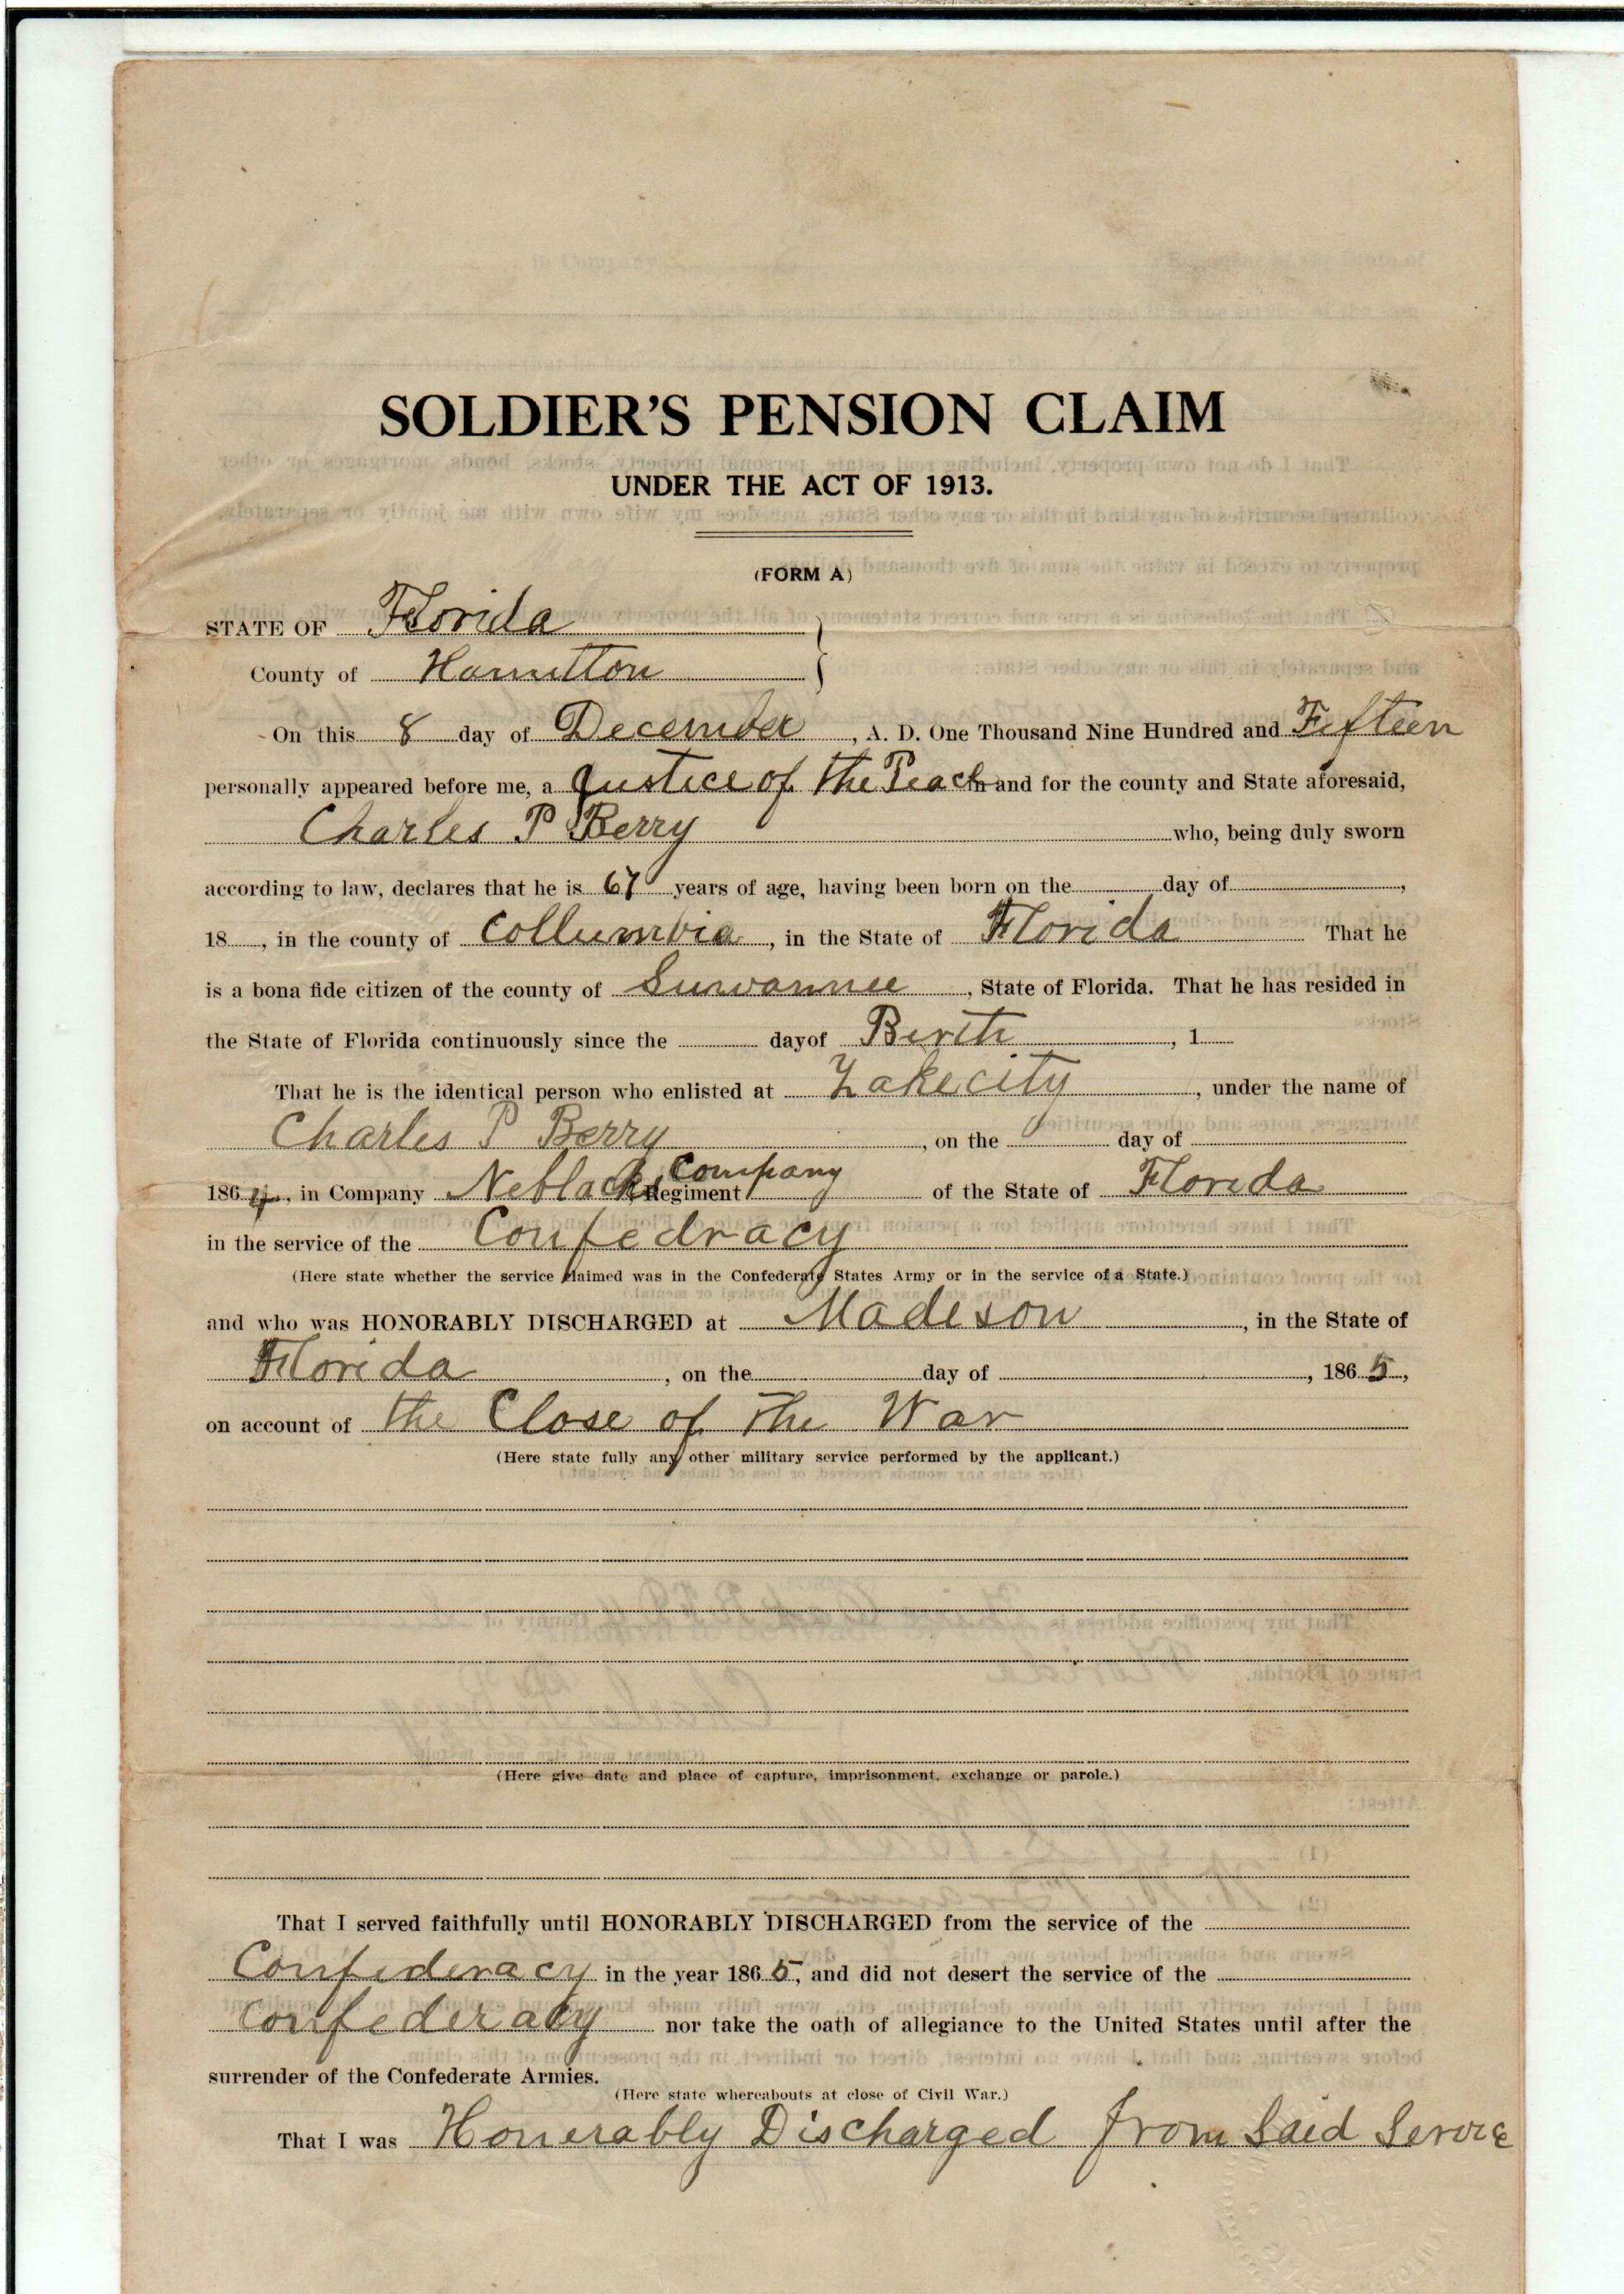 SOLDIER'S PENSION CLAIM
UNDER THE ACT OF 1913.
(FORM A)
STATE OF Florida
County of Hamilton
On this 8 day of December, A. D. One Thousand Nine Hundred and Fifteen
personally appeared before me, a Justice of the Peace in and for the county and State aforesaid,
Charles P Berry who, being duly sworn
according to law, declares that he is 67 years of age, having been born on the day of ,
18 , in the county of Collumbia, in the State of Florida That he
is a bona fide citizen of the county of Suwannee, State of Florida. That he has resided in
the State of Florida continuously since the day of Birth, 1
That he is the identical person who enlisted at Lake city, under the name of
Charles P Berry, on the day of
1864, in Company Neblacks Company Regiment of the State of Florida
in the service of the Confedracy
(Here state whether the service claimed was in the Confederate States Army or in the service of a State.)
and who was HONORABLY DISCHARGED at Madeson, in the State of
Florida, on the day of , 1865,
on account of the Close of the War
(Here state fully any other military service performed by the applicant.)
(Here give date and place of capture, imprisonment, exchange or parole.)
That I served faithfully until HONORABLY DISCHARGED from the service of the
Confideracy in the year 1865, and did not desert the service of the
Confederacy nor take the oath of allegiance to the United States until after the
surrender of the Confederate Armies.
(Here state whereabouts at close of Civil War.)
That I was Honerably Discharged from Said Service